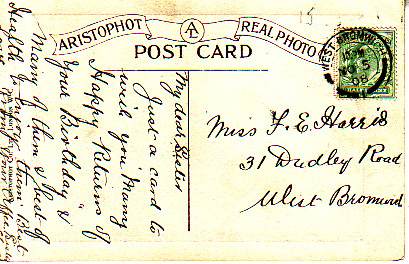 15
ARISTOPHOT AL REAL PHOTO
POST CARD
WEST BROMWICH
NO 5
08
HALFPENNY
My dear Sister
Just a card to
wish you Many
Happy Returns of
Your Birthday &
Many of them & best of
Health to enjoy them. Best
Miss F. E. Harris
31 Dudley Road
West Bromwich